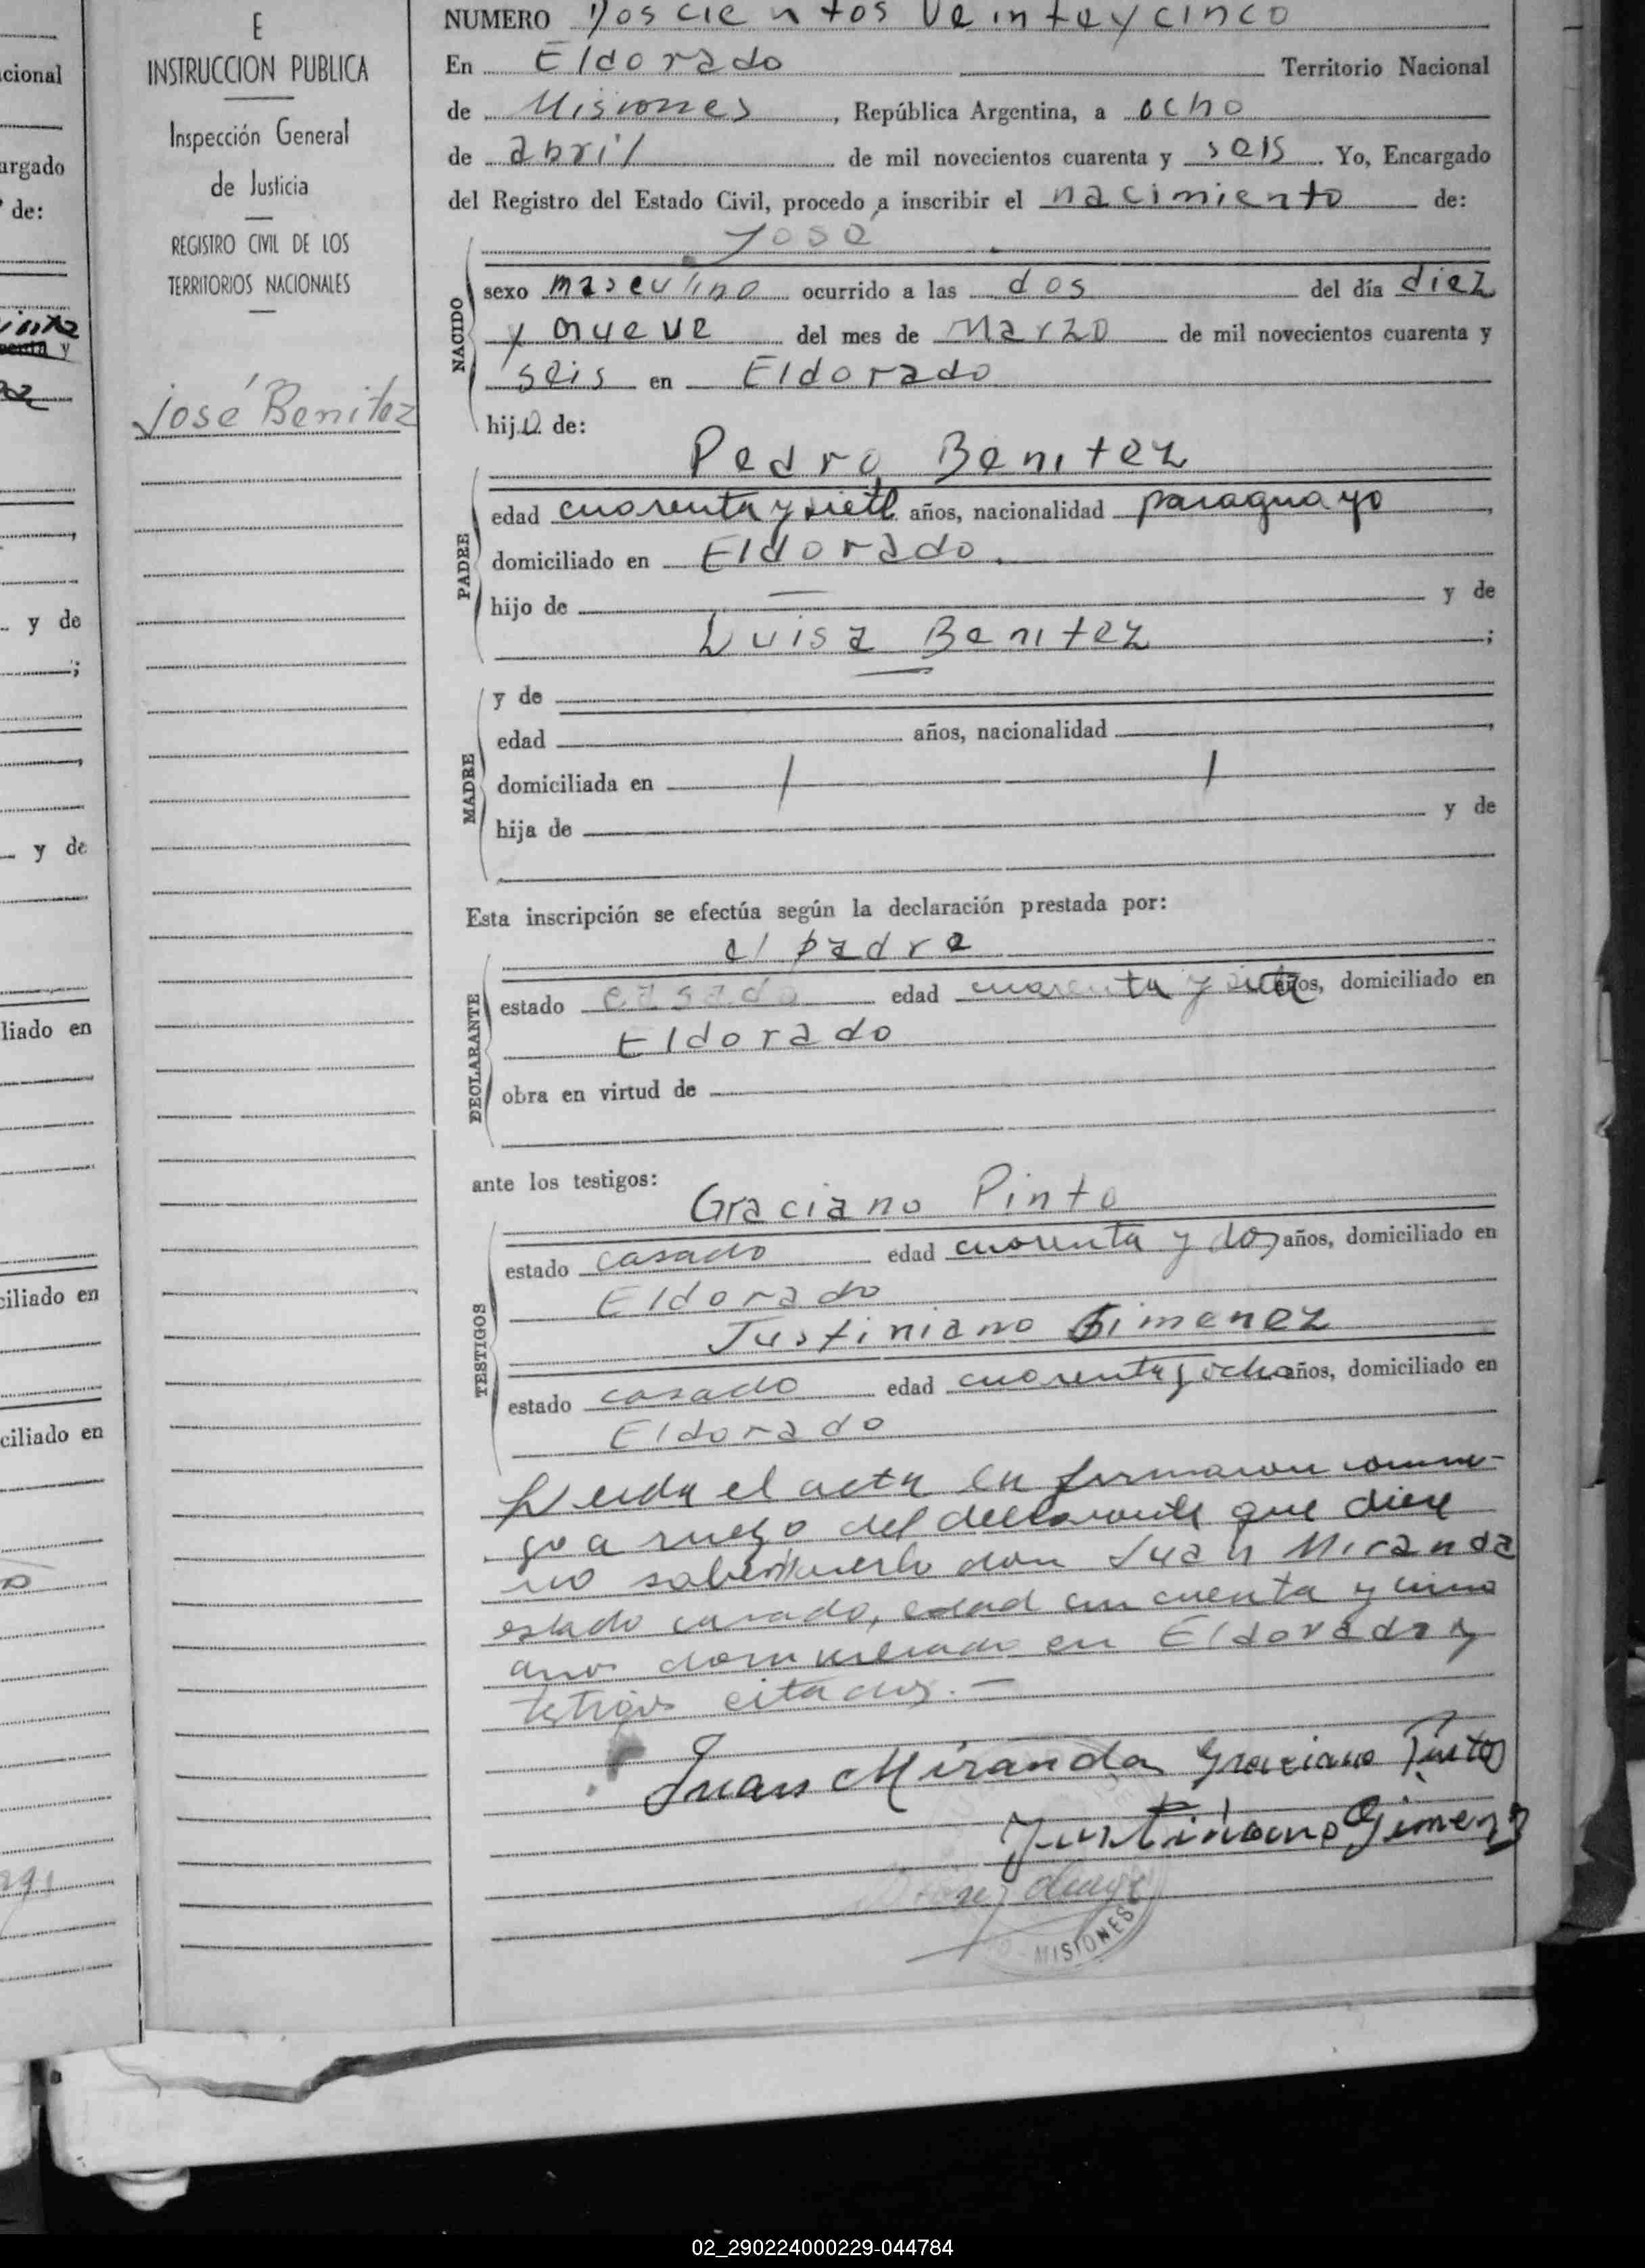 E
INSTRUCCION PUBLICA
Inspección General
de Justicia
REGISTRO CIVIL DE LOS
TERRITORIOS NACIONALES
José Benitez
cional
argado
de:
y
y de
;
y de
liado en
ciliado en
ciliado en
NUMERO Doscientos Veinte y cinco
En Eldorado Territorio Nacional
de Misiones, República Argentina, a ocho
de abril de mil novecientos cuarenta y seis. Yo, Encargado
del Registro del Estado Civil, procedo a inscribir el nacimiento de:
José
NACIDO
sexo masculino ocurrido a las dos del día diez
y nueve del mes de Marzo de mil novecientos cuarenta y
seis en Eldorado
hijo de:
Pedro Benitez
PADRE
edad cuarenta y siete años, nacionalidad paraguayo,
domiciliado en Eldorado.
hijo de — y de
Luisa Benitez;
MADRE
y de
edad años, nacionalidad,
domiciliada en
hija de y de
Esta inscripción se efectúa según la declaración prestada por:
el padre
DECLARANTE
estado casado edad cuarenta y siete años, domiciliado en
Eldorado
obra en virtud de
ante los testigos:
Graciano Pinto
TESTIGOS
estado casado edad cuarenta y dos años, domiciliado en
Eldorado
Justiniano Gimenez
estado casado edad cuarenta y ocho años, domiciliado en
Eldorado
Leida el acta la firmaron conmi-
go a ruego del declarante que dice
no saber hacerlo don Juan Miranda
estado casado, edad cincuenta y cinco
anos domiciliado en Eldorado y
testigos citados.—
Juan Miranda Graciano Pinto
Justiniano Gimenez
MISIONES
02_290224000229-044784